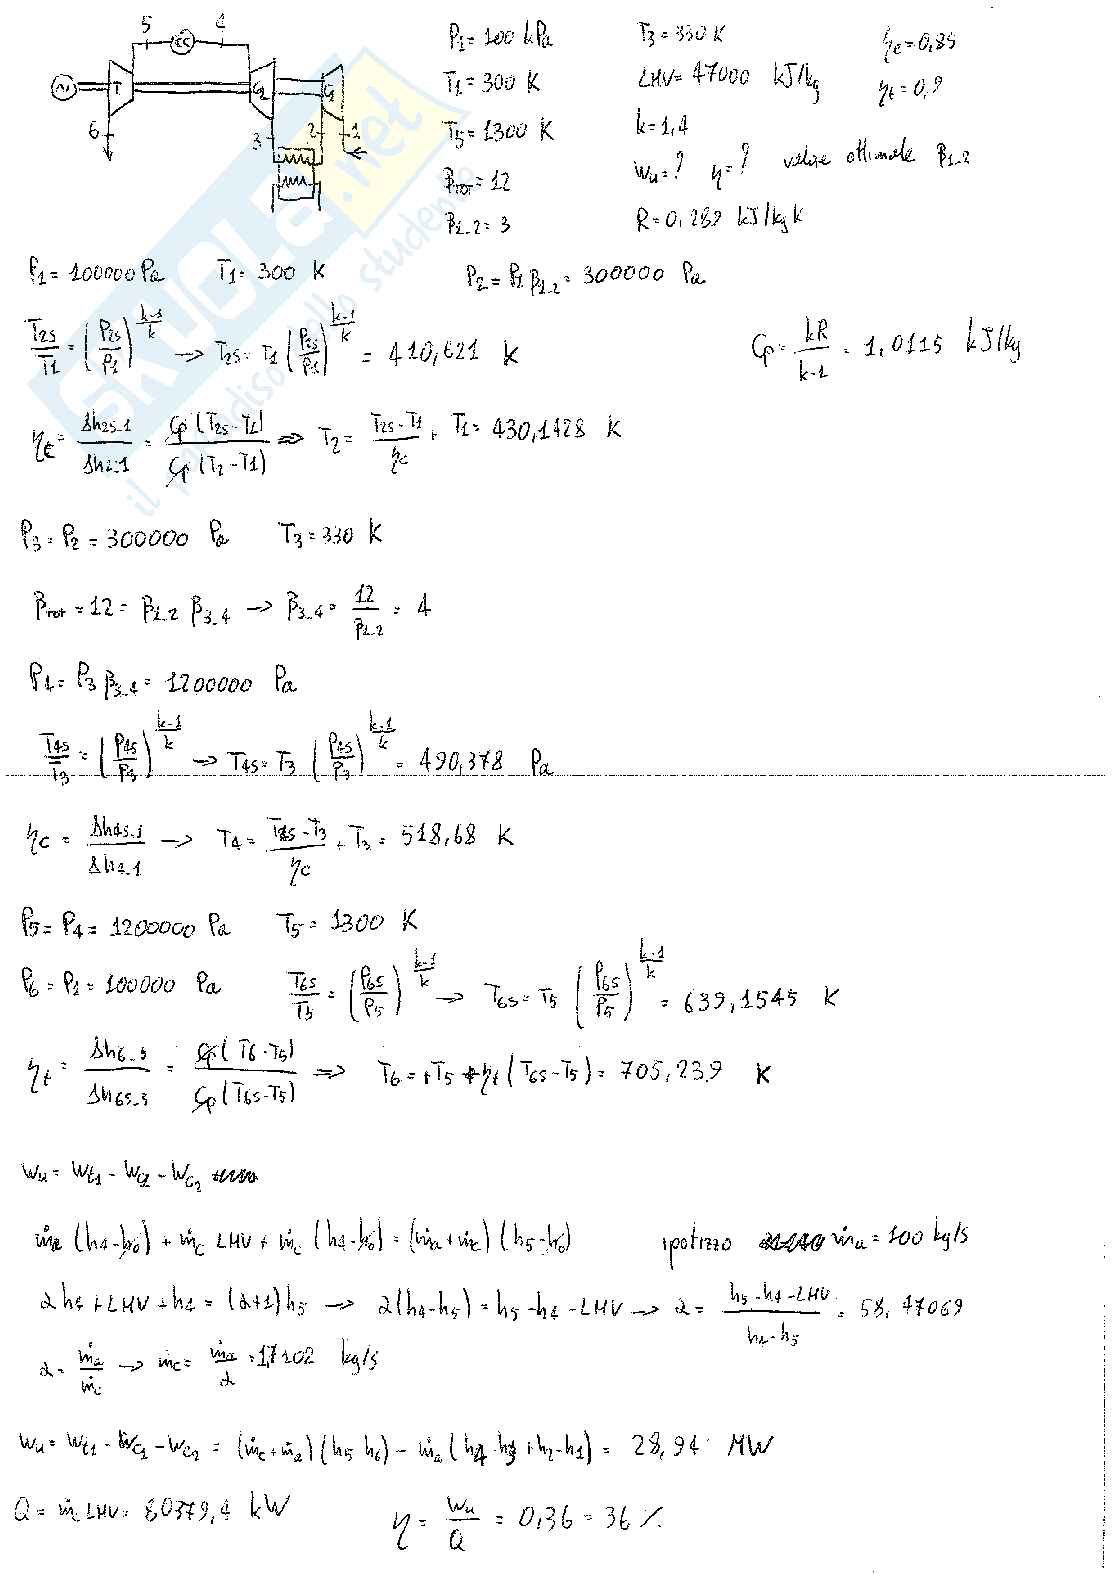 5 4
CC
T C2 C1
6 3 2 1
P1 = 100 kPa T3 = 330 K ηc = 0,85
T1 = 300 K LHV = 47000 kJ/kg ηt = 0,9
T5 = 1300 K k = 1,4
βTOT = 12 wu = ? η = ? valore ottimale β1-2
β1-2 = 3 R = 0,289 kJ/kg K
SKUOLA.net
il paradiso dello studente
P1 = 100000 Pa T1 = 300 K P2 = P1 β1-2 = 300000 Pa
T2s/T1 = (P2s/P1)^((k-1)/k) → T2s = T1 (P2s/P1)^((k-1)/k) = 410,621 K Cp = kR/(k-1) = 1,0115 kJ/kg
ηc = Δh2s-1/Δh2-1 = Cp (T2s-T1)/Cp (T2-T1) ⇒ T2 = (T2s-T1)/ηc + T1 = 430,1428 K
P3 = P2 = 300000 Pa T3 = 330 K
βTOT = 12 = β1-2 β3-4 → β3-4 = 12/β1-2 = 4
P4 = P3 β3-4 = 1200000 Pa
T4s/T3 = (P4s/P3)^((k-1)/k) → T4s = T3 (P4s/P3)^((k-1)/k) = 490,378 Pa
ηc = Δh4s-1/Δh4-1 → T4 = (T4s-T3)/ηc + T3 = 518,68 K
P5 = P4 = 1200000 Pa T5 = 1300 K
P6 = P1 = 100000 Pa T6s/T5 = (P6s/P5)^((k-1)/k) → T6s = T5 (P6s/P5)^((k-1)/k) = 639,1545 K
ηt = Δh6-5/Δh6s-5 = Cp (T6-T5)/Cp (T6s-T5) ⇒ T6 = +T5 + ηt (T6s-T5) = 705,239 K
wu = wt1 - wc1 - wc2
ṁa (h4-h0) + ṁc LHV + ṁc (h4-h0) = (ṁa+ṁc) (h5-h0) ipotizzo ṁa = 100 kg/s
α h4 + LHV + h4 = (α+1) h5 → α (h4-h5) = h5-h4-LHV → α = (h5-h4-LHV)/(h4-h5) = 58,47069
α = ṁa/ṁc → ṁc = ṁa/α = 1,7102 kg/s
wu = wt1 - wc1 - wc2 = (ṁc+ṁa) (h5-h6) - ṁa (h4-h3+h2-h1) = 28,94 MW
Q = ṁc LHV = 80379,4 kW η = wu/Q = 0,36 = 36 %